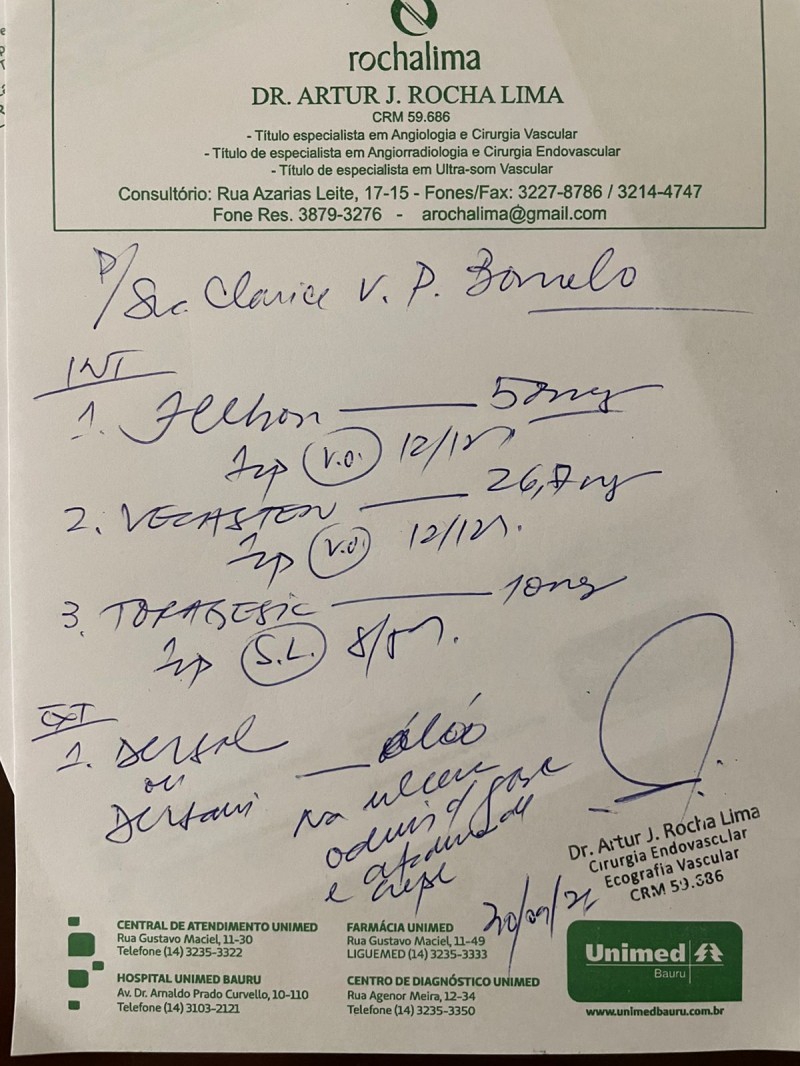 rochalima
DR. ARTUR J. ROCHA LIMA
CRM 59.686
- Título especialista em Angiologia e Cirurgia Vascular
- Título de especialista em Angiorradiologia e Cirurgia Endovascular
- Título de especialista em Ultra-som Vascular
Consultório: Rua Azarias Leite, 17-15 - Fones/Fax: 3227-8786 / 3214-4747
Fone Res. 3879-3276 - arochalima@gmail.com
P/ Sra. Clarice V. P.
INT
1. 50mg
V.O. 12/12h
2. VECASTEN 26,7mg
V.O. 12/12h.
3. TORAGESIC 10mg
S.L. 8/8h.
EXT
1. Dersol óleo
ou
Dersani na ulcera
gase
e atadura de
crepe
Dr. Artur J. Rocha Lima
Cirurgia Endovascular
Ecografia Vascular
CRM 59.686
CENTRAL DE ATENDIMENTO UNIMED
Rua Gustavo Maciel, 11-30
Telefone (14) 3235-3322
HOSPITAL UNIMED BAURU
Av. Dr. Arnaldo Prado Curvello, 10-110
Telefone (14) 3103-2121
FARMÁCIA UNIMED
Rua Gustavo Maciel, 11-49
LIGUEMED (14) 3235-3333
CENTRO DE DIAGNÓSTICO UNIMED
Rua Agenor Meira, 12-34
Telefone (14) 3235-3350
Unimed
Bauru
www.unimedbauru.com.br